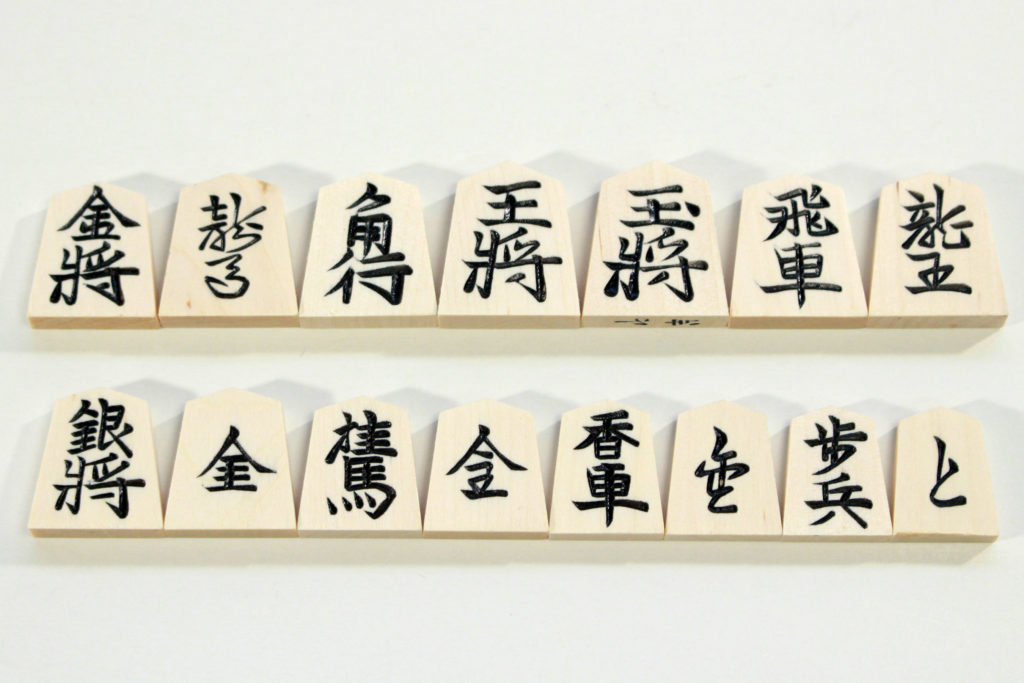 金將 龍馬 角行 王將 玉將 飛車 龍王
銀將 金 桂馬 全 香車 歩兵 と